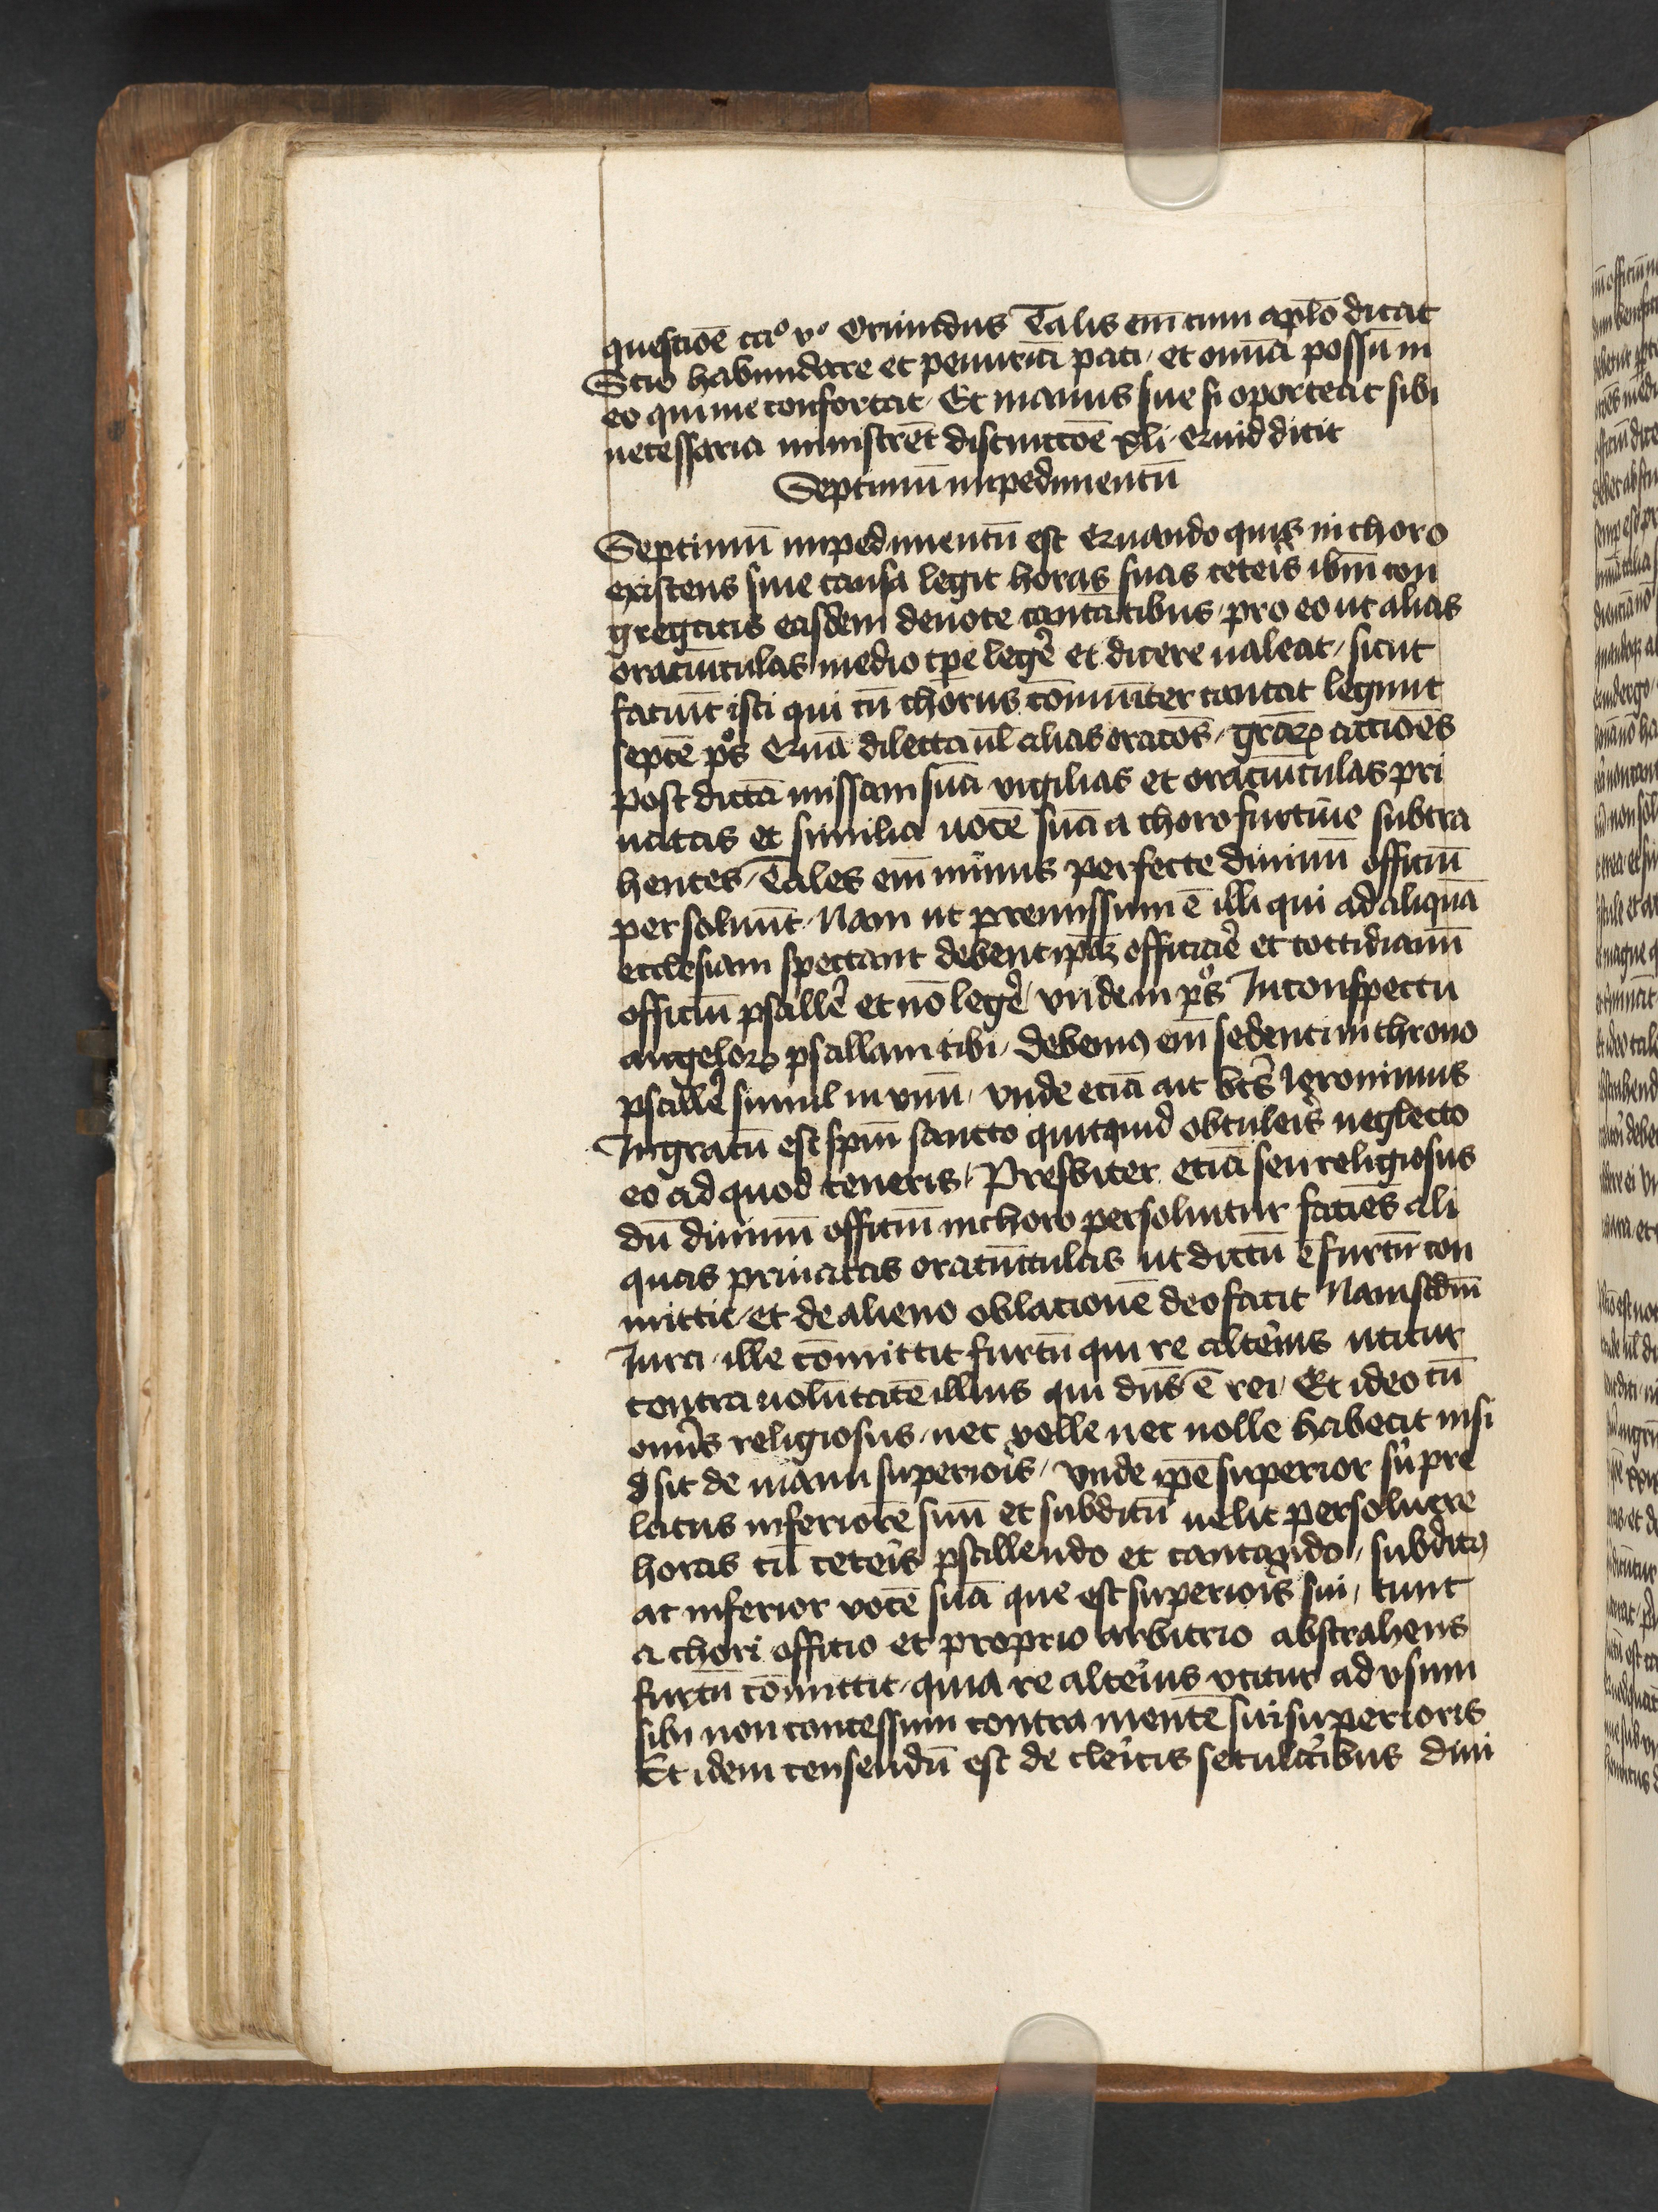 questiōe cciᵒ vᵒ Eruindus Talis em̄ cum apl̄o dicat
Scio habundare et penuriā pati / et om̄ia possū in
eo qui me confortat / Et manus sue si oporteat sibi
necessaria ministrēt distinctōe xli · Quid dicit
Septimū impedimentū
Septimū impedimentū est Quando quis in choro
existens sine causa legit horas suas ceteis ibm̄ con
gregatis easdem deuote cantātibus / pro eo ut alias
oratiūculas medio tp̄e leg̓e et dicere ualeat / sicut
faciūt isti qui cū chorus cōmūiter cantat legunt
septē pōs Quā dilecta ul̄ alias oratōs / gr̄aꝝ actiōes
post dictā missam suā vigilias et oratiūculas pri
uatas et similia uocē suā a choro furtiue subtra
hentes / Tales em̄ minus perfecte diuinū officiū
persoluūt / Nam ut premissum ē illi qui ad aliquā
ecclesiam spectant debent ip̄aꝫ officiar̓e et cottidianū
officiū psall̓e et nō leg̓e / vnde in pōs In conspectu
angeloꝝ psallam tibi / debemꝰ em̄ sedenti in throno
psall̓e simul in vnū / vnde etiā ait bt̄s Ieronimus
Ingratū est spm̄ sancto quitquid obtuleis neglecto
eo ad quod teneris / Presbiter etiā seu religiosus
dū diuinū officiū in choro persoluitur faciēs ali
quas priuatas oratiūculas ut dictū ē furtū con
mittit / et de alieno oblationē deo facit Nam scdm̄
Iura / ille cōmittit furtū qui re alteius utitur
contra uolūtatē illius qui dn̄s ē rei / Et ideo cū
omīs religiosus / nec velle nec nolle habeat nisi
qd sit de manu superiois / vnde ip̄e superior su᷑ pre
latus inferiorē suū et subditū uelit persoluere
horas cū ceteis psallendo et cantando / subditꝰ
at inferior vocē suā que est superiois sui / tunc
a chori officio et proprio arbitrio abstrahens
furtū cōmittit / quia re alteius vtitur ad vsum
sibi non concessum contra mentē sui superioris
Et idem censendū est de cleicis seculaibus diui